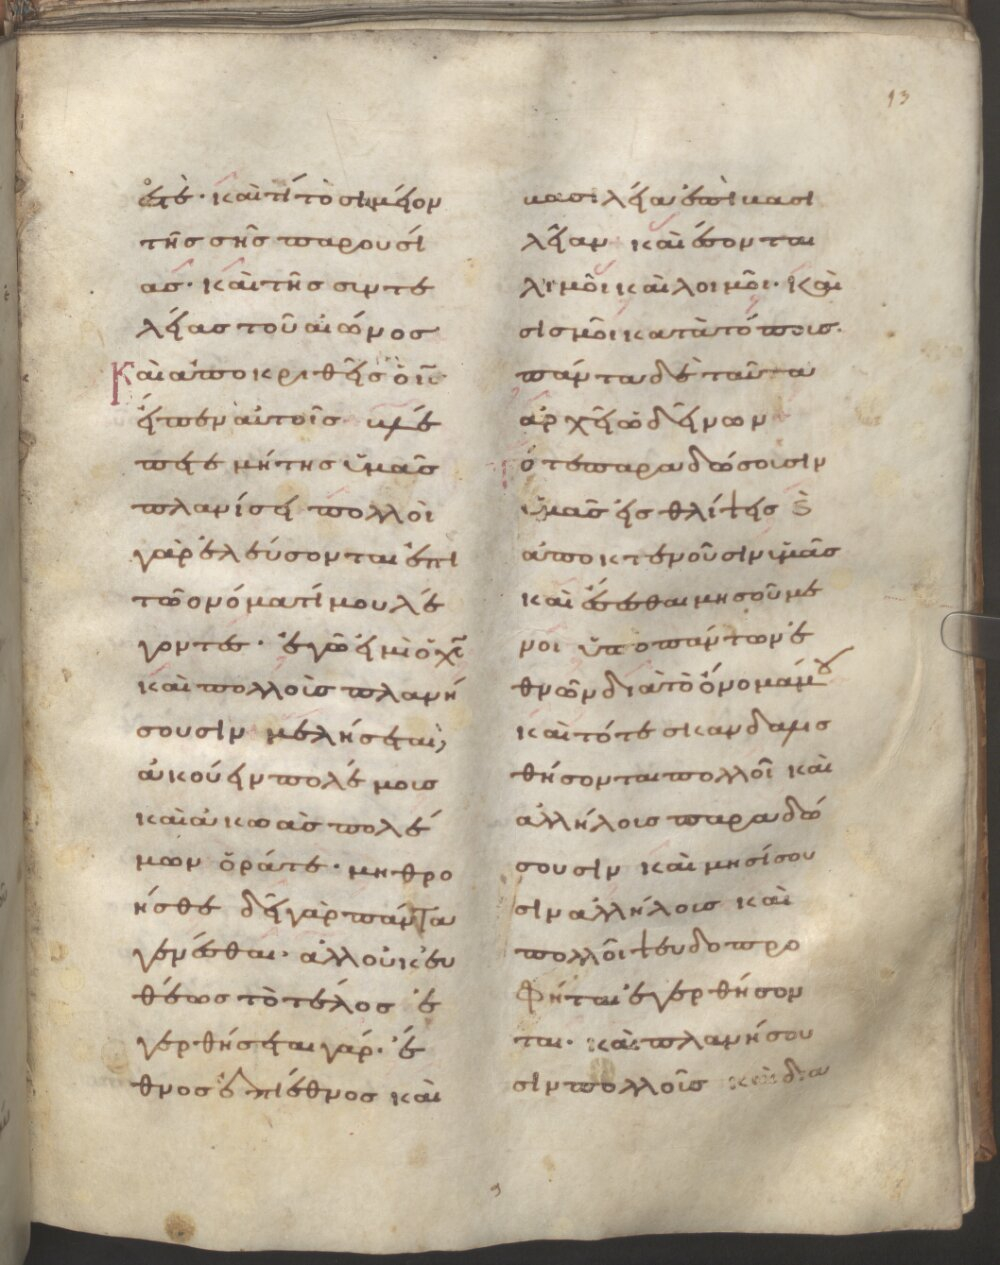 93
ἐτὲ· καὶ τί τὸ σιμέον
τῆς σῆς παρουσί
ας· καὶ τῆς σιντε
λείας τοῦ αἰώνος
Καὶ ἀποκριθεὶς ὁ ις
εἶπεν αὐτοῖς·
μήτης ὑμᾶς
πλανίσει πολλοὶ
γὰρ ἐλεύσονται ἐπὶ
τῶ ὀνόματί μου λέ
γοντες· ἐγῶ εἰμὶ ὁ χς
καὶ πολλοὶς πλανή
σουσιν μελήσεται,
ἀκούειν πολέμοις
καὶ ἀκωὰς πολέ
μων ὁράτε· μη θρο
ήσθε δεῖ γὰρ πάντα
γενέσθαι· ἀλλ οὐκ ευ
θέως τὸ τέλος ἐ
γερθήσεται γάρ· ἔ
θνος ἐπὶ ἔθνος καὶ
βασιλεία ἐπὶ βασι
λείαν καὶ ἔσονται
λιμοὶ καὶ λοιμοὶ· καὶ
σισμοὶ κατὰ τόποις·
πάντα δὲ ταῦτα
ἀρχεὶ ὠδείνων
ότε παραδώσοισιν
ὑμᾶς εἰς θλίψεις ϗ
ἀποκτενοῦσιν ὑμᾶς
καὶ ἔσεσθαι μησοῦμε
νοι ὑπο πάντων ἐ
θνῶν διὰ τὸ ὄνομά μου
καὶ τότε σικανδαλισ
θήσονται πολλοὶ καὶ
ἀλλήλοις παραδώ
σουσιν καὶ μησίσου
σιν ἀλλήλοις καὶ
πολλοὶ ψευδοπρο
φήται ἐγερθήσον
ται· καὶ πλανήσου
σιν πολλοῖς καὶ δια